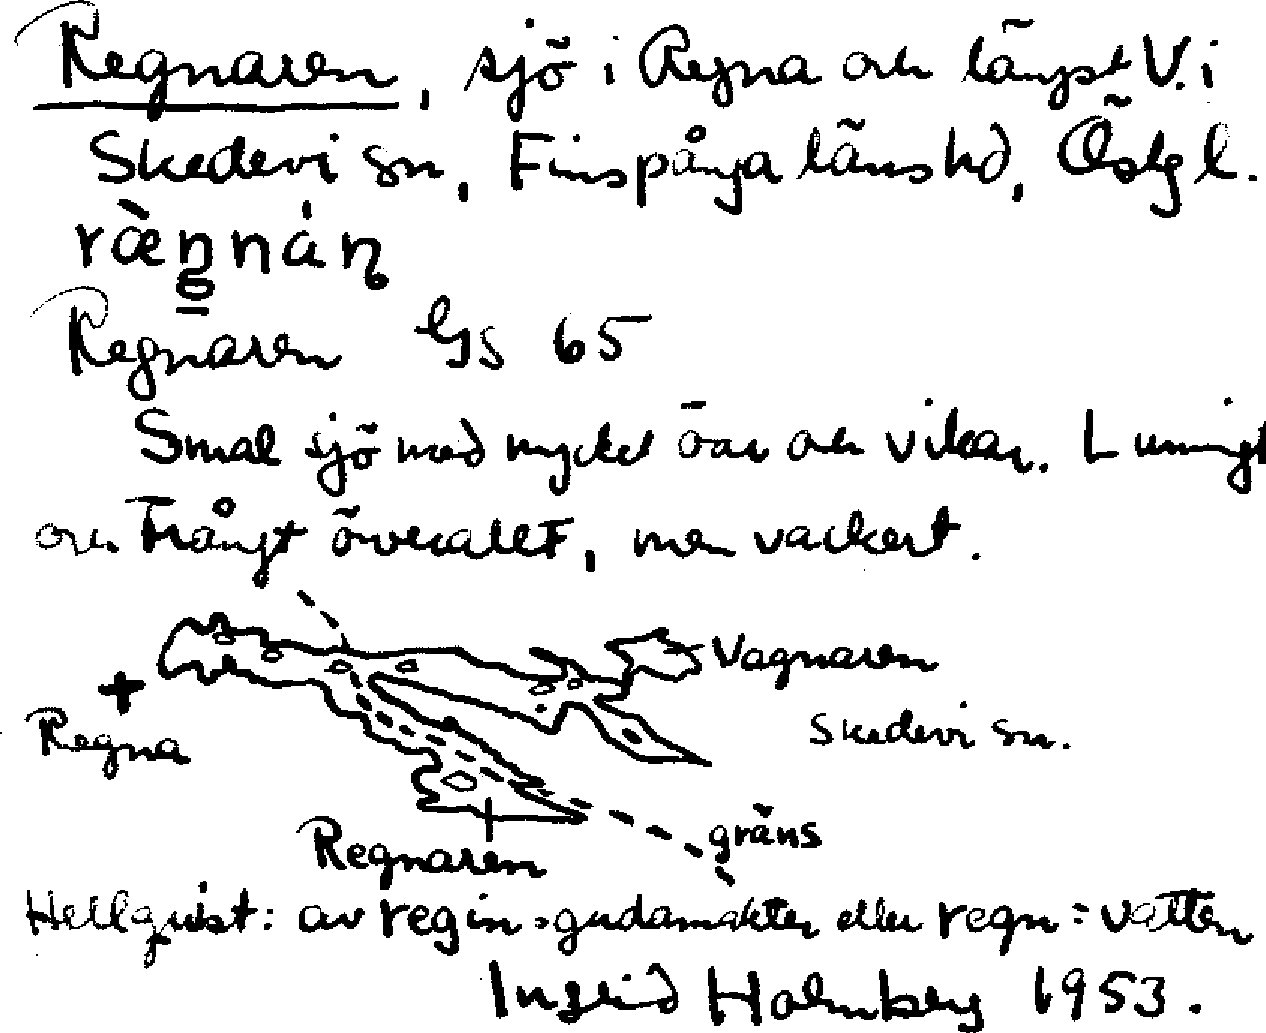 Regnaren, sjö i Regna och längst V. i
Skedevi sn, Finspånga läns hd, Östgl.
Regnaren GS 65
Smal sjö med mycket öar och vikar. Lummigt
och Trångt överallt, men vackert.
Vagnaren
Regna
Skedevi sn.
gräns
Regnaren
Hellquist: av regin, gudamakter eller regn = vatten
Ingrid Holmberg 1953.